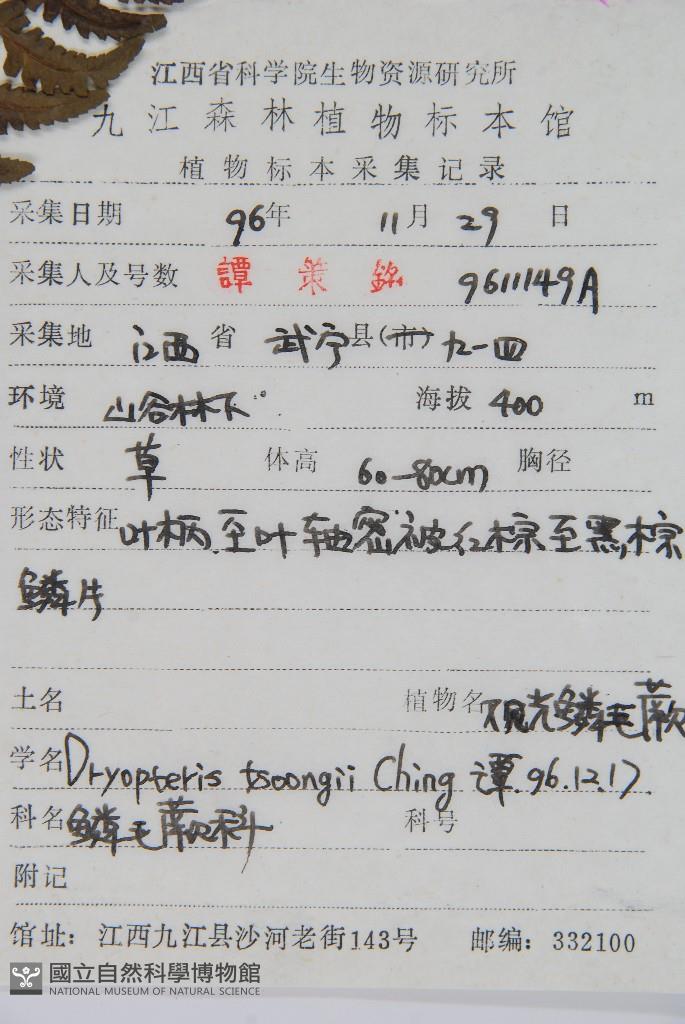 江西省科学院生物资源研究所
九江森林植物标本馆
植物标本采集记录
采集日期 96年 11月 29 日
采集人及号数 譚策銘 9611149A
采集地 江西省 武宁县(市) 九一四
环境 山谷林下。 海拔 400 m
性状 草 体高 60-80cm 胸径
形态特征 叶柄至叶轴密被红棕至黑棕
鳞片
土名 植物名 观光鳞毛蕨
学名 Dryopteris tsoongii Ching 谭.96.12.17.
科名 鳞毛蕨科 科号
附记
馆址：江西九江县沙河老街143号 邮编：332100
國立自然科學博物館
NATIONAL MUSEUM OF NATURAL SCIENCE